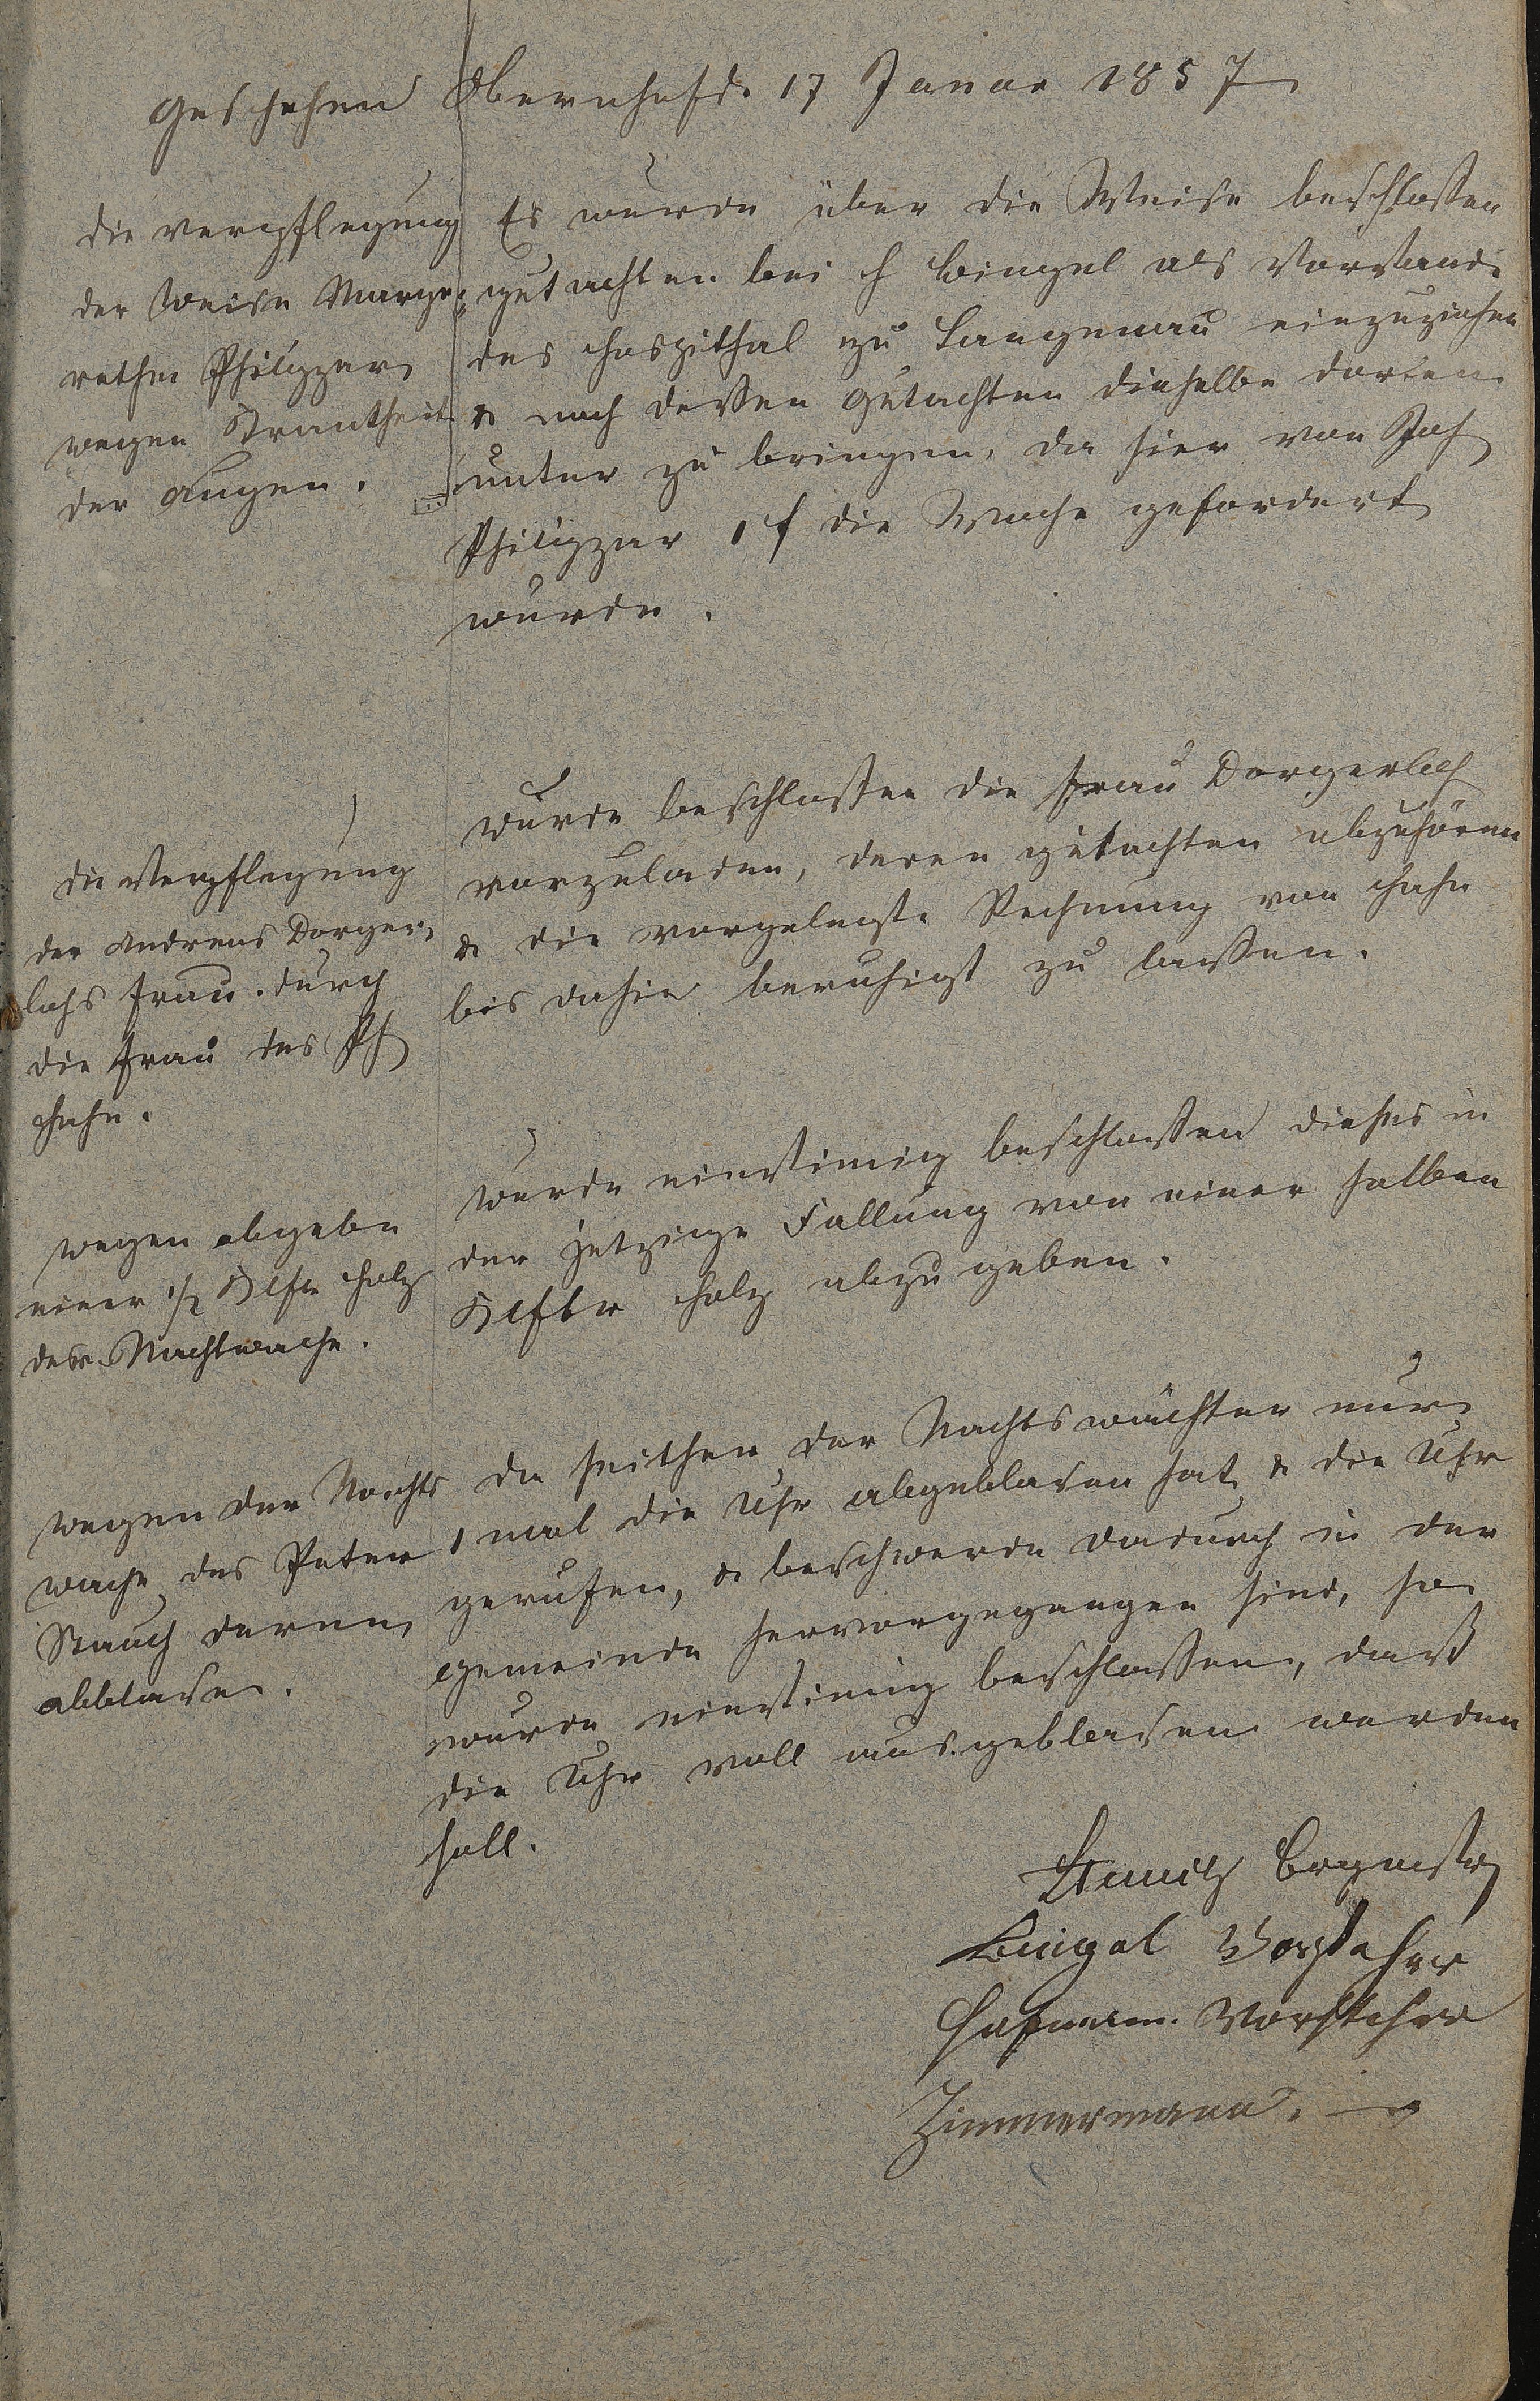 Geschehen Obernhof d. 17 Januar 1857
die verpflegung
der Weise Marga-
rethe Philippar
wegen Krankheit
der Augen.
Es wurde über die Weise beschlossen
gutachten bei H Bingel als Vorstand
des Hospithal zu Langenau einzuziehen
& nach dessen Gutachten dieselbe dorten
unter zu bringen, da hier von Joh
Philippar 1 f die Woche gefordert
wurde.
die Verpflegung
der Andreas Dorger-
lohs frau. durch
die frau des Ph
Hahn.
wurde beschlossen die frau Dorgerloh
vorzuladen, deren gutachten abzuhören
& die vorgelegte Rechnung von Hahn
bis dahin beruhigt zu lassen.
wegen abgabe
einer 1/2 Klftr Holz
der Nachtwache.
wurde einstimig beschlossen dieses in
der jetzige Fallung von einer halben
Klftr Holz abzu geben.
wegen der Nachts
wache des Peter
Stauch deren
abblasen.
da seither der Nachtswächter nur
1 mal die Uhr abgeblasen hat & die Uhr
gerufen, & beschwerde dadurch in der
gemeinde hervorgegangen sind, so
wurde einstimig beschlossen, daß
die Uhr voll ausgeblasen werden
soll.
Bürgmstr
Bingel Vorsteher
Hofmann. Vorsteher
Zimmermann.